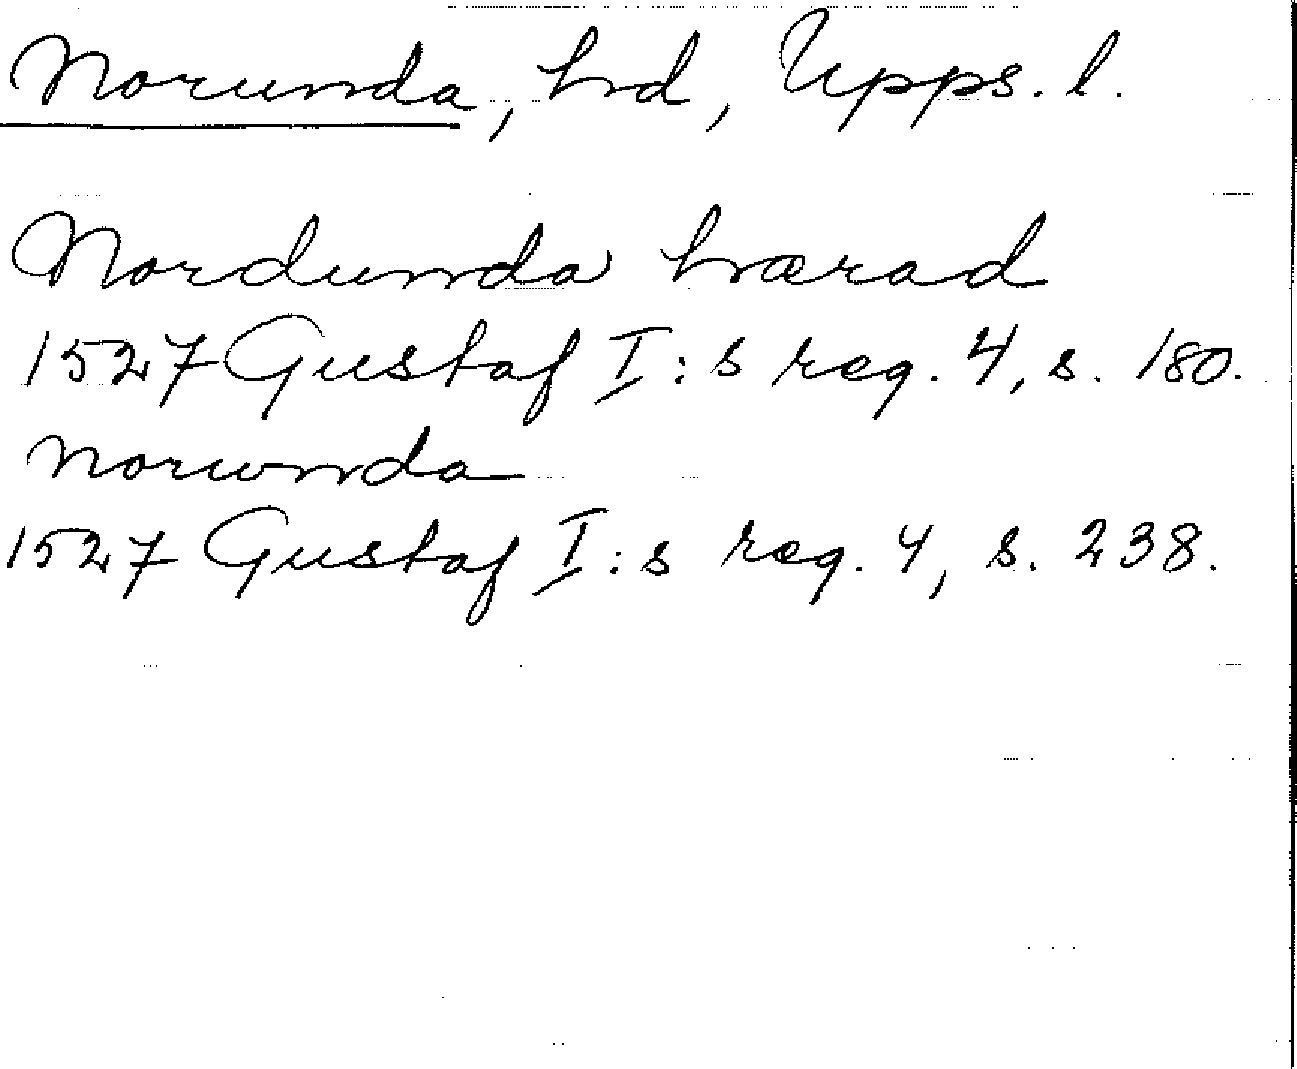 Norunda, hd, Upps. l.
Nordunda hærad
1527 Gustaf I:s reg. 4, s. 180.
Norwnda
1527 Gustaf I:s reg. 4, s. 238.